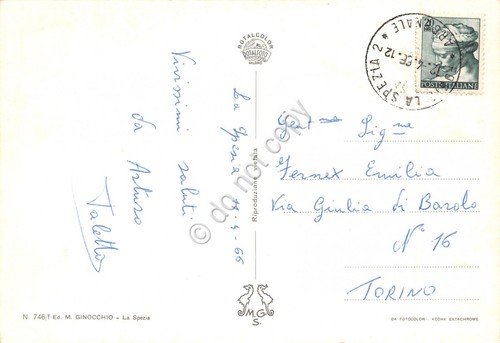 ROTALCOLOR
ROTALFOTO
Vivissimi saluti
da Arturo
Taletto
La Spezia 11-4-66
Riproduzione vietata
LA SPEZIA 2
ARSENALE
12.4.66.12
POSTE ITALIANE
Gent. Sig.na
Fernex Emilia
Via Giulia di Barolo
N° 16
TORINO
N. 746/T Ed. M. GINOCCHIO - La Spezia
M.G.
S.
DA FOTOCOLOR - KODAK EKTACHROME
do not copy